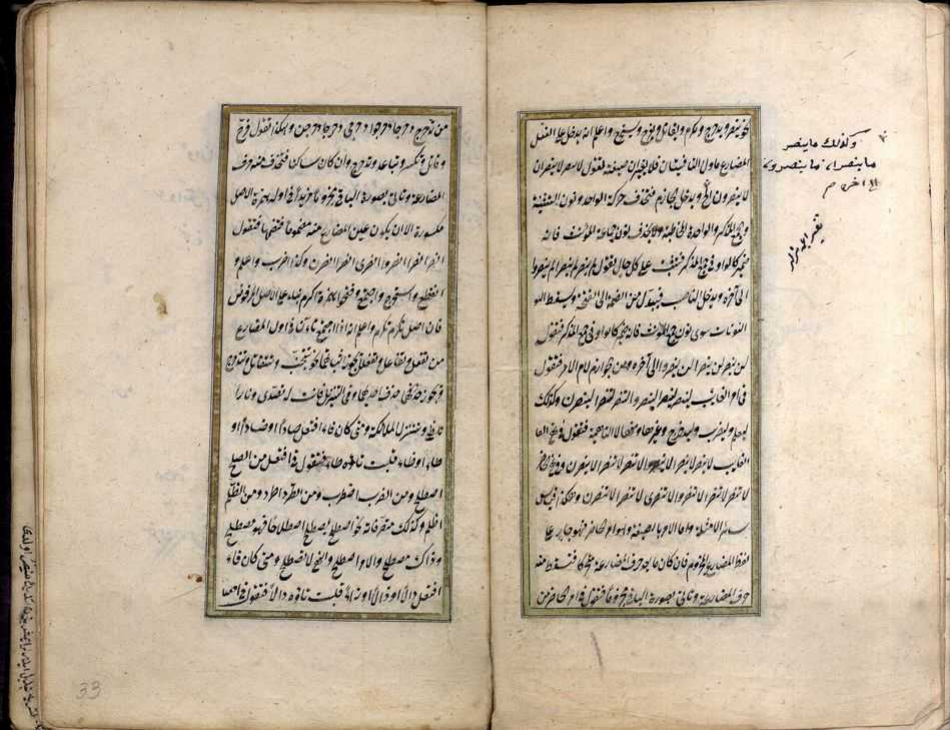 نحو ينصر ويدحرج ويكرم ويقاتل ويفرح ويستخرج واعلم انه يدخل على الفعل
المضارع ما ولا النافيتان فلا يغيران صيغته فتقول لا ينصر لا ينصران
لا ينصرون الخ ويدخل الجازم فيحذف حركة الواحد ونون التثنية
وجمع المذكر والواحدة المخاطبة ولا يحذف نون جماعة المؤنث فانه
ضمير كالواو في جمع المذكر فتثبت على كل حال فتقول لم ينصر لم ينصرا لم ينصروا
الى آخره ويدخل الناصب فيبدل من الضمة الى الفتحة ويسقط
النونات سوى نون جمع المؤنث فانه ضمير كالواو في جمع المذكر فتقول
لن ينصر لن ينصرا لن ينصروا الى آخره ومن الجوازم لام الامر فتقول
في امر الغائب لينصر لينصرا لينصروا لتنصر لتنصرا لينصرن وكذلك
ليعلم وليضرب وليدحرج وغيرها ومنها لا الناهية فتقول في نهي الغا
الغايب لا ينصر لا ينصرا لا ينصروا لا تنصر لا تنصرا لا ينصرن وفي نهي الحاضر
لا تنصر لا تنصرا لا تنصروا لا تنصري لا تنصرا لا تنصرن وهكذا قياس
سائر الامثلة واما الامر بالصيغة وهو امر الحاضر فهو جار على
لفظ المضارع المجزوم فان كان ما بعد حرف المضارعة متحركا فتسقط منه
حرف المضارعة وتأتي بصورة الباقي مجزوما فتقول في امر الحاضر من
وكذلك ما ينصر
ما ينصران ما ينصرون
الى اخره
من تدحرج دحرج دحرجا دحرجوا دحرجي دحرجا دحرجن وهكذا تقول فرح
وقاتل وتكسر وتباعد وتدحرج وان كان ساكنا فتحذف منه حرف
المضارعة وتأتي بصورة الباقي مجزوما مزيدا في اوله همزة الوصل
مكسورة الا ان يكون عين المضارع منه مضموما فتضمها فتقول
انصر انصرا انصروا انصري انصرا انصرن وكذا اضرب واعلم و
انقطع واستخرج واجتمع وفتحوا همزة اكرم بناء على الاصل المرفوض
فان اصل تكرم تؤكرم واعلم انه اذا اجتمع تاءان في اول المضارع
من تفعل وتفاعل وتفعلل فيجوز اثباتهما نحو تتجنب وتتقاتل وتتدحرج
ويجوز حذف احديهما وفي التنزيل فانت له تصدى ونارا
تلظى وتنزل الملائكة ومتى كان فاء افتعل صادا او ضادا او
طاء او ظاء قلبت تاؤه طاء فتقول في افتعل من الصلح
اصطلح ومن الضرب اضطرب ومن الطرد اطرد ومن الظلم
اظلم وكذلك متصرفاته نحو اصطلح يصطلح اصطلاحا فهو مصطلح
وذاك مصطلح والامر اصطلح والنهي لا تصطلح ومتى كان فاء
افتعل دالا او ذالا او زاء قلبت تاؤه دالا فتقول في افتعل
33